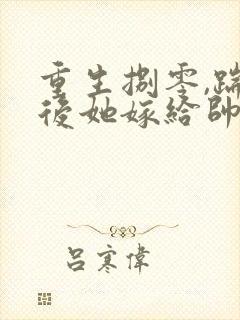 重生捌零,踹
後她嫁給帥
呂寒偉